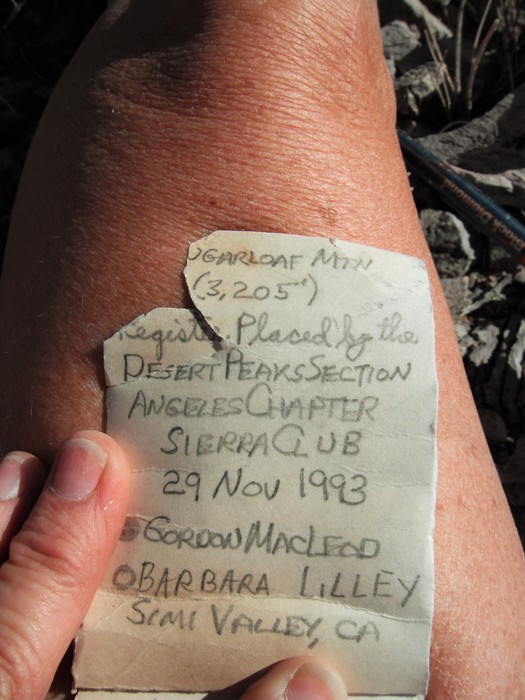 UGARLOAF MTN
(3,205')
Register Placed by the
DESERT PEAKS SECTION
ANGELES CHAPTER
SIERRA CLUB
29 NOV 1993
GORDON MACLEOD
BARBARA LILLEY
SIMI VALLEY, CA